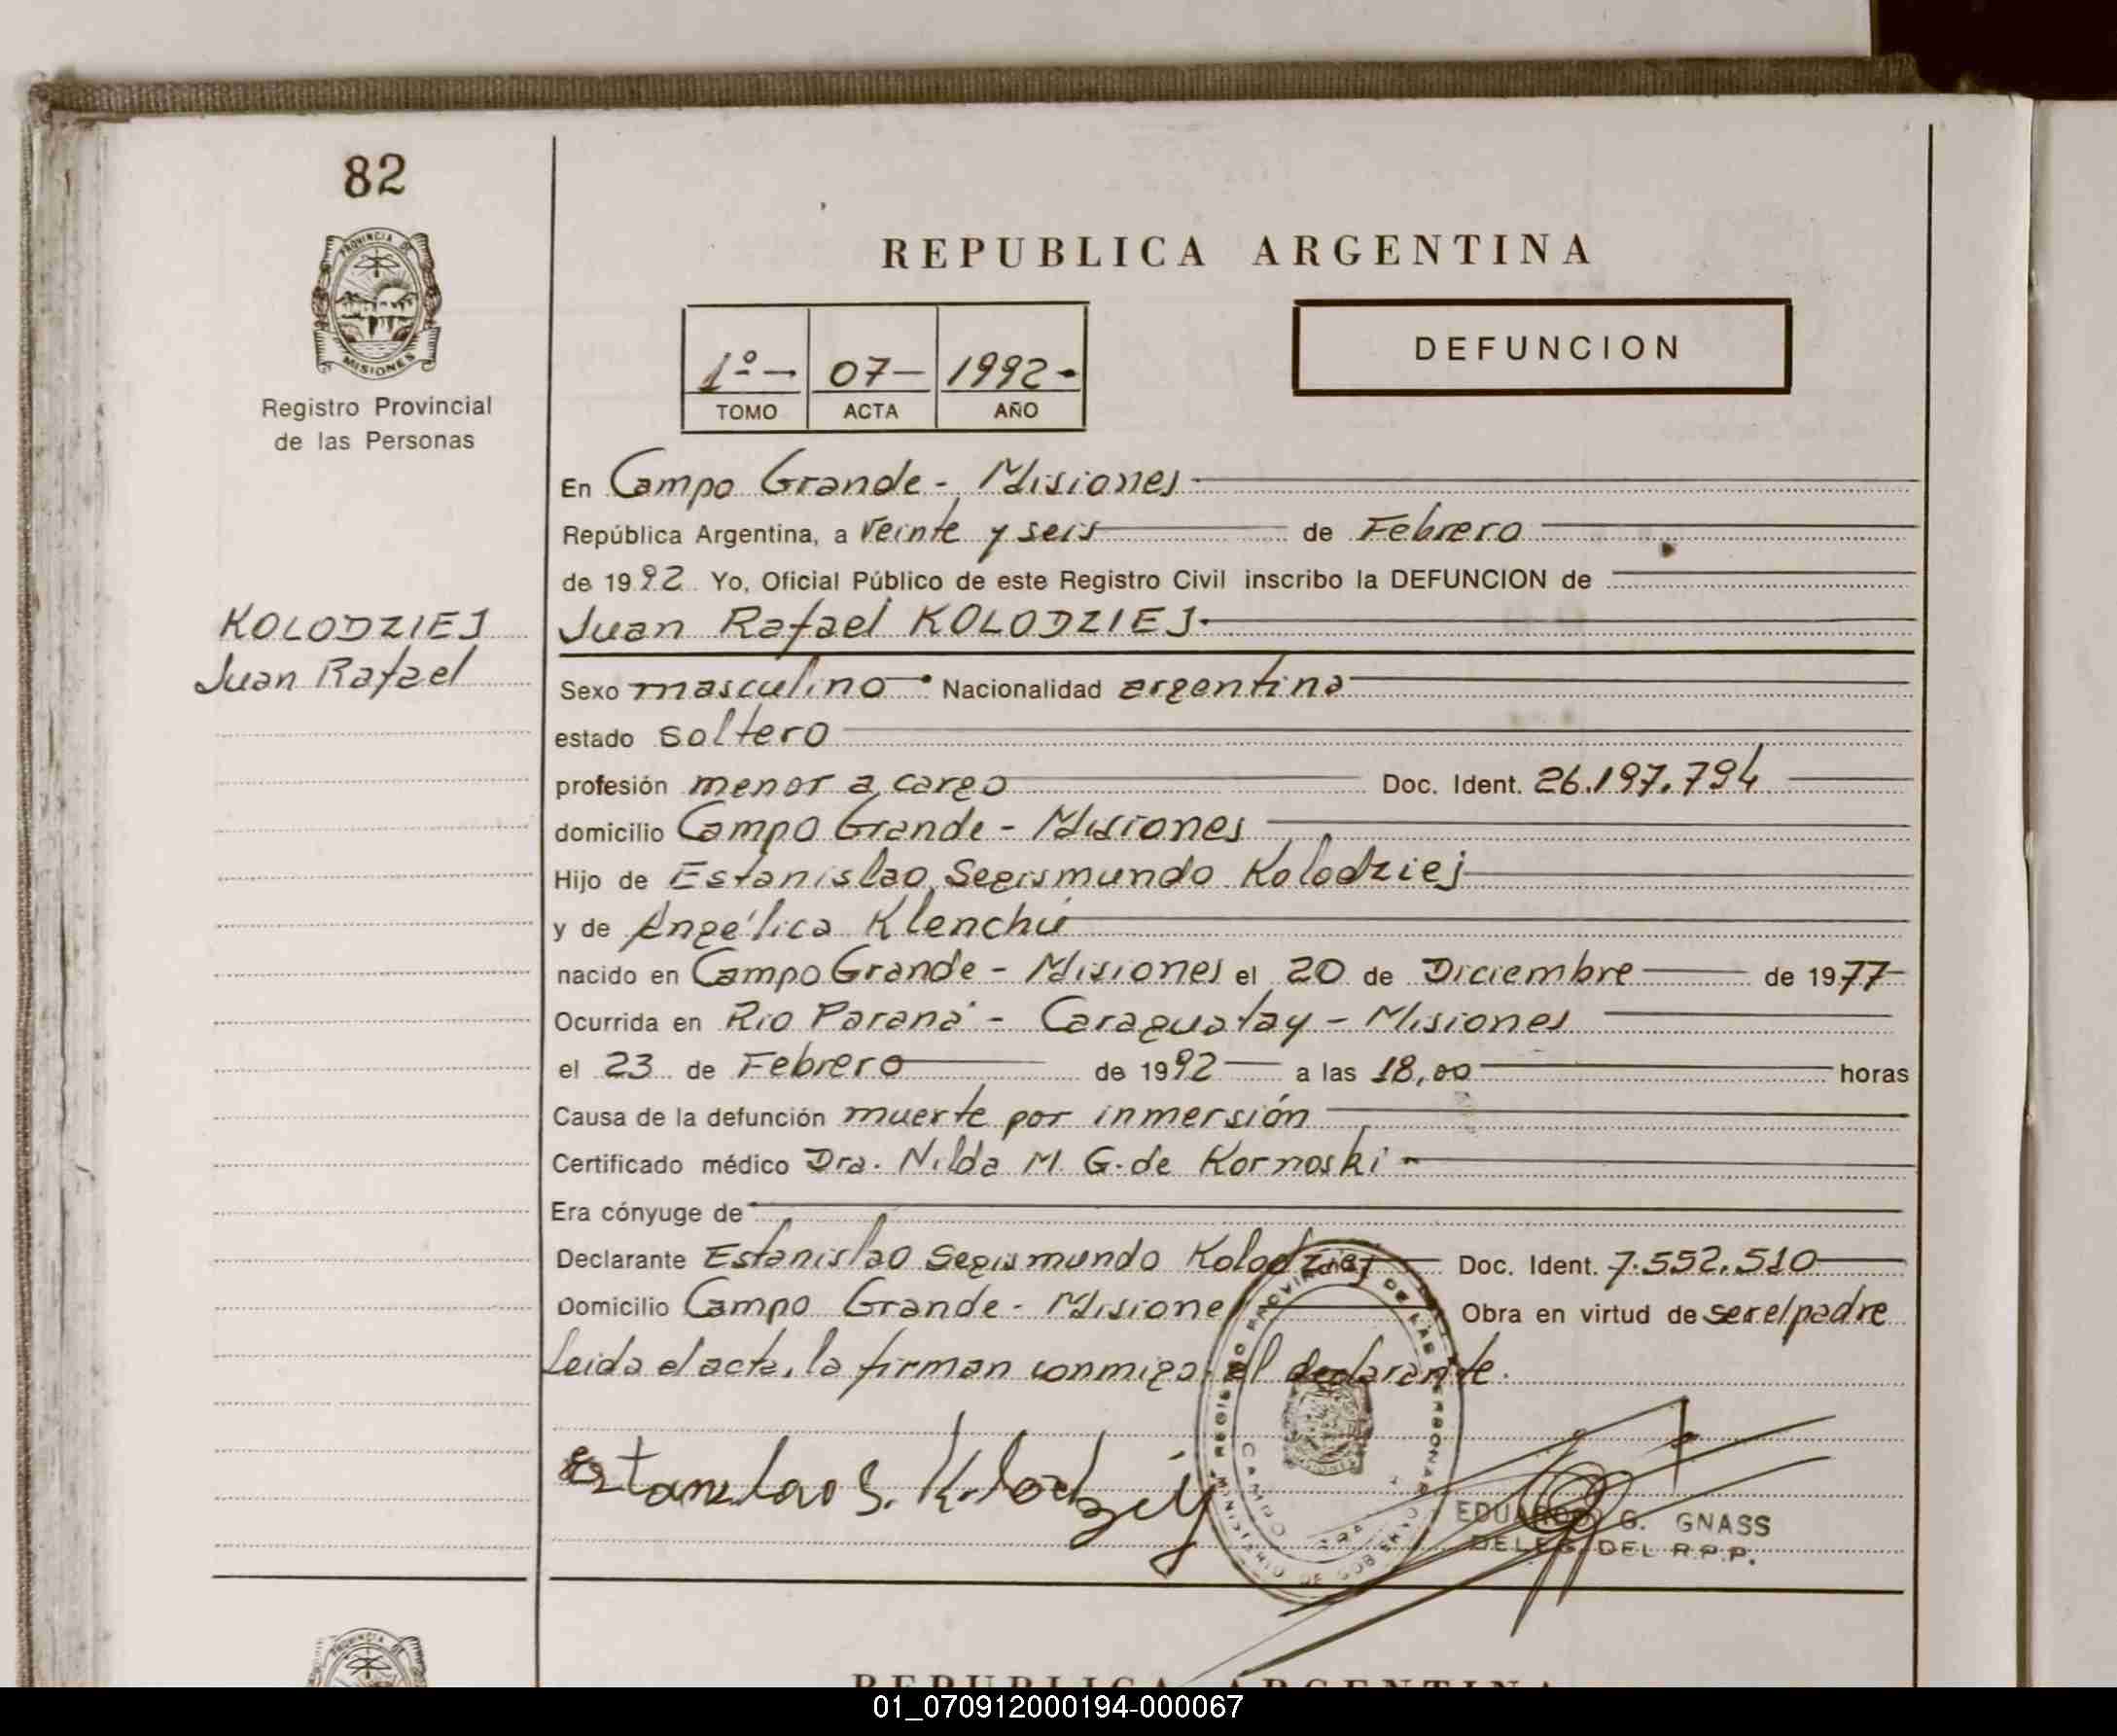 82
PROVINCIA DE
MISIONES
Registro Provincial
de las Personas
REPUBLICA ARGENTINA
1º - 07 - 1992 -
TOMO ACTA AÑO
DEFUNCION
En Campo Grande - Misiones
República Argentina, a veinte y seis de Febrero
de 1992 Yo, Oficial Público de este Registro Civil inscribo la DEFUNCION de
KOLODZIEJ
Juan Rafael
Juan Rafael KOLODZIEJ.
Sexo masculino. Nacionalidad argentina
estado soltero
profesión menor a cargo Doc. Ident. 26.197.794
domicilio Campo Grande - Misiones
Hijo de Estanislao Segismundo Kolodziej
y de Angélica Klenchü
nacido en Campo Grande - Misiones el 20 de Diciembre de 1977
Ocurrida en Río Paraná - Caraguatay - Misiones
el 23 de Febrero de 1992 a las 18,00 horas
Causa de la defunción muerte por inmersión
Certificado médico Dra. Nilda M. G. de Kornoski -
Era cónyuge de
Declarante Estanislao Segismundo Kolodziej Doc. Ident. 7.552.510
Domicilio Campo Grande - Misiones Obra en virtud de ser el padre
Leida el acta, la firman conmigo: el declarante.
Estanislao S. Kolodziej
REGISTRO PROVINCIAL DE LAS PERSONAS
MINISTERIO DE GOBIERNO
CAMPO
EDUARDO G. GNASS
DELEG. DEL R.P.P.
PROVINCIA DE
REPUBLICA ARGENTINA
01_070912000194-000067